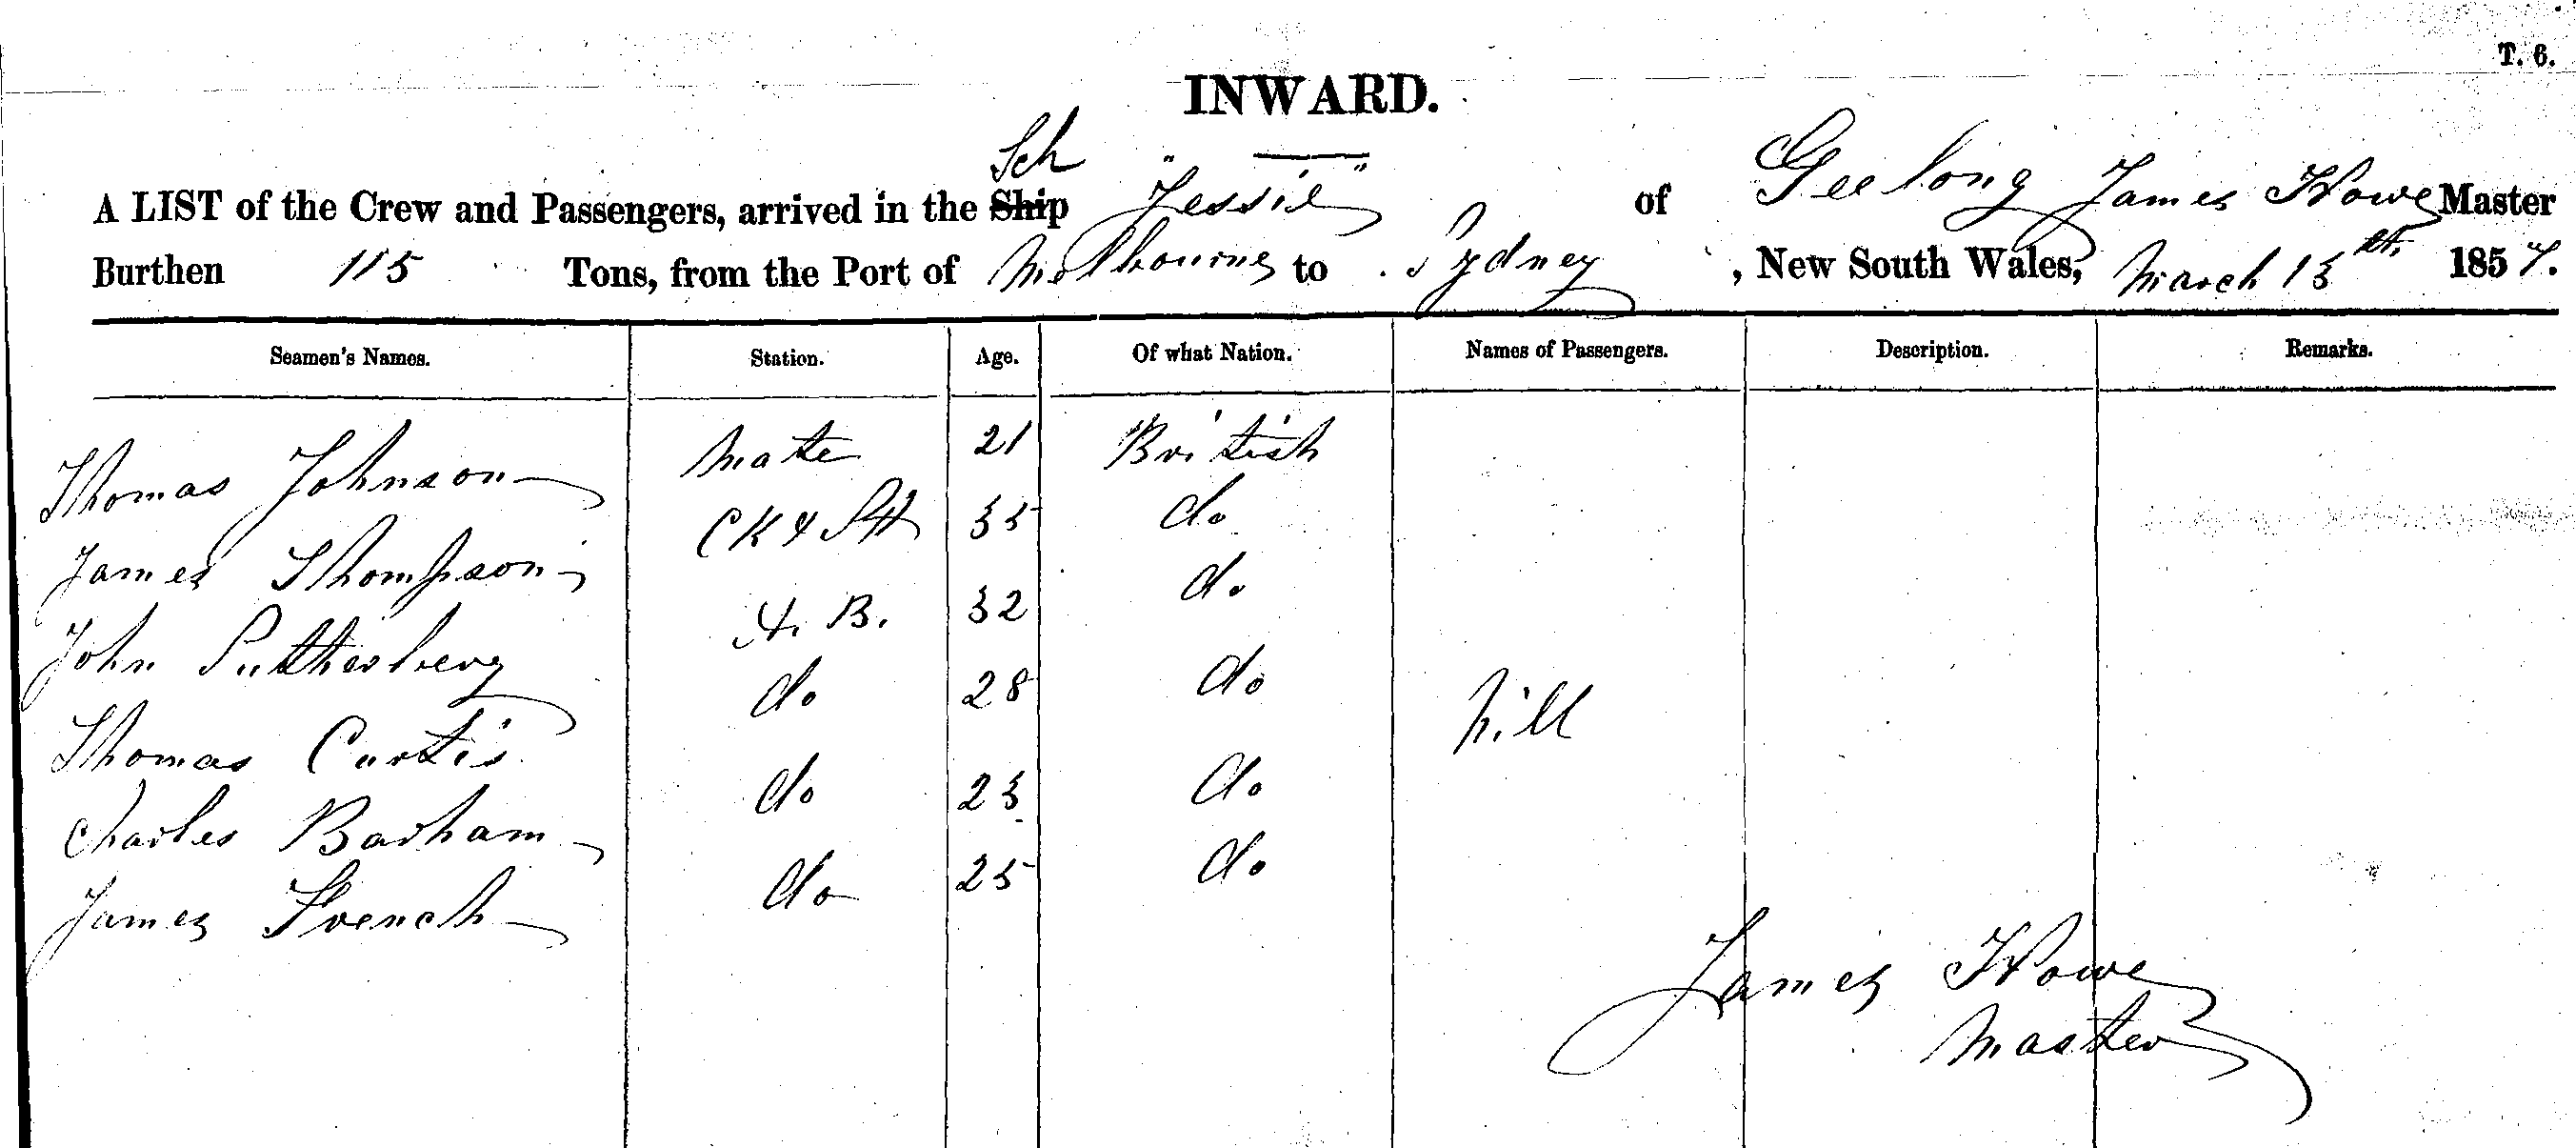 T. 6.
INWARD.
Sch
A LIST of the Crew and Passengers, arrived in the Ship "Jessie" of Geelong James Howe Master
Burthen 115 Tons, from the Port of Melbourne to Sydney, New South Wales, March 15th 1857.
Seamen's Names. Station. Age. Of what Nation. Names of Passengers. Description. Remarks.
Thomas Johnson Mate 21 British
James Thompson CK & St 35 do
John A. B. 32 do
Thomas Curtis do 28 do Nill
Charles Barham do 23 do
James French do 25 do
James Howe
Master